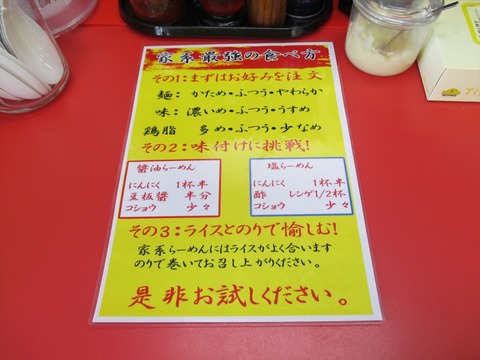 家系最強の食べ方
その1:まずはお好みを注文
麺: かため・ふつう・やわらか
味: 濃いめ・ふつう・うすめ
鶏脂 多め・ふつう・少なめ
その2:味付けに挑戦!
醤油らーめん
にんにく 1杯半
豆板醤 半分
コショウ 少々
塩らーめん
にんにく 1杯半
酢 レンゲ1/2杯
コショウ 少々
その3:ライスとのりで愉しむ!
家系らーめんにはライスがよく合います
のりで巻いてお召し上がりください。
是非お試しください。